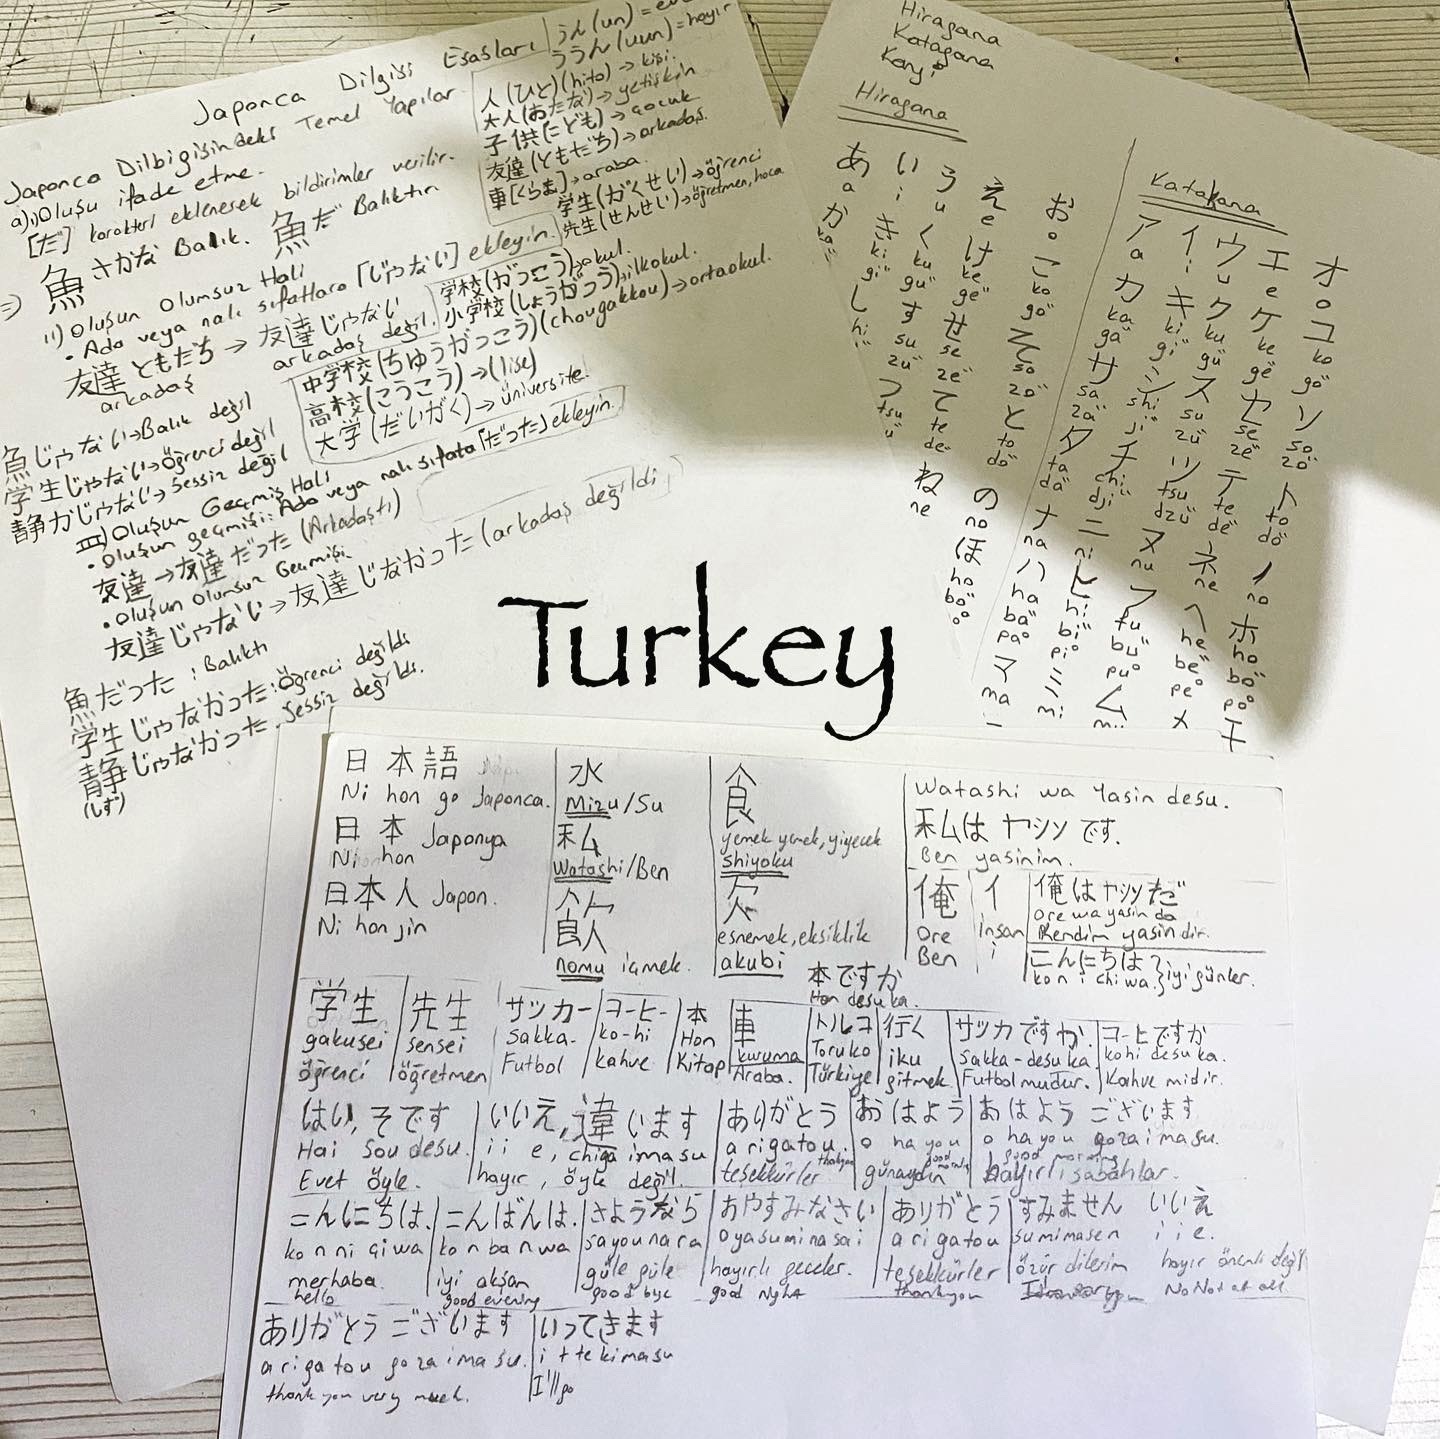 Japonca Dilgisi Esasları
Japonca Dilbigisindeki Temel Yapılar
a)i)Oluşu ifade etme.
[だ] karakteri eklenerek bildirimler verilir.
魚 さかな Balık. 魚だ Balıktır
ii) Oluşun Olumsuz Hali
• Ada veya nalı sıfatlara [じゃない] ekleyin.
友達 ともだち → 友達じゃない
arkadaş arkadaş değil.
魚じゃない→Balık değil
学生じゃない→öğrenci değil
静かじゃない→ sessiz değil
III) Oluşun Geçmiş Hali
• Oluşun geçmişi: Ada veya nalı sıfata「だった」ekleyin.
友達→友達だった (Arkadaştı)
• Oluşun Olumsuz Geçmişi
友達じゃない→友達じなかった (arkadaş değildi)
魚だった : Balıktı
学生じゃなかった: öğrenci değildi
静じゃなかった. sessiz değildi.
(しず)
うん(un) =
ううん(uun) = hayır
人 (ひと)(hito) → kişi
大人(おたな)→ yetişkin
子供(こども)→ çocuk
友達 (ともだち)→arkadaş.
車[くらま]→araba.
学生(がくせい)→öğrenci
先生(せんせい)→öğretmen, hoca
学校(がっこう)→okul.
小学校(しょうがつう)→ilkokul.
中学校(ちゅうがっこう)(chougakkou)→ortaokul.
高校(こうこう)→(lise)
大学(だいがく)→ üniversite.
Hiragana
Katagana
Kanyi
Hiragana
あ い う え お
a i u e o
か き く け こ
ki ku ke ko
gi gu ge go
し す せ そ
su se so
zu ze zo
つ て と
tsu te to
de do
ね の
ne no
ほ
ho
bo
Katakana
ア イ ウ エ オ
a i u e o
カ キ ク ケ コ
ka ki ku ke ko
ga gi gu ge go
サ シ ス セ ソ
sa shi su se so
za ji zu ze zo
タ チ ツ テ ト
ta chi tsu te to
da dji dzu de do
ナ ニ ヌ ネ ノ
na ni nu ne no
ハ ヒ フ ヘ ホ
ha hi fu he ho
ba bi bu be bo
pa pi pu pe po
マ ミ ム メ モ
ma mi
Turkey
日本語 水 食 Watashi wa Yasin desu.
Ni hon go Japonca. Mizu/Su yemek yemek, yiyecek 私は ヤシン です.
日本 Japonya 私 shiyoku Ben yasinim.
Ni hon Watashi/Ben
日本人 Japon. 飲 欠 俺 イ 俺は ヤシンだ
Ni hon jin esnemek, eksiklik Ore insan Ore wa yasin da
nomu içmek. akubi Ben i Kendim yasin dir.
こんにちは iyi günler.
ko n i chi wa
本ですか
Hon desu ka.
学生 先生 サッカー コーヒー 本 車 トルコ 行く サッカですか. コーヒですか
gakusei sensei sakka- ko-hi Hon kuruma Toruko iku sakka-desu ka. kohi desu ka.
öğrenci öğretmen Futbol kahve Kitap Araba. Türkiye gitmek. Futbol mudur. Kahve midir.
はい, そです いいえ, 違います ありがとう おはよう おはよう ございます
Hai sou desu. i i e, chiga imasu a ri ga tou. o ha you o ha you gozaimasu.
Evet öyle. hayır, öyle değil. teşekkürler thankyou günaydın good morning hayırlı sabahlar. good morning
こんにちは. こんばんは. さようなら おやすみなさい ありがとう すみません いいえ
ko n ni çi wa ko n ba n wa sa you na ra o ya su mi na sa i a ri ga tou sumimasen i i e.
merhaba. iyi akşan güle güle hayırlı geceler. teşekkürler özür dilerim hayır önemli değil
hello good evening good bye good night thank you No Not at all.
ありがとう ございます いってきます
a ri ga tou go za i ma su. i t te ki ma su
thank you very much. I'll go